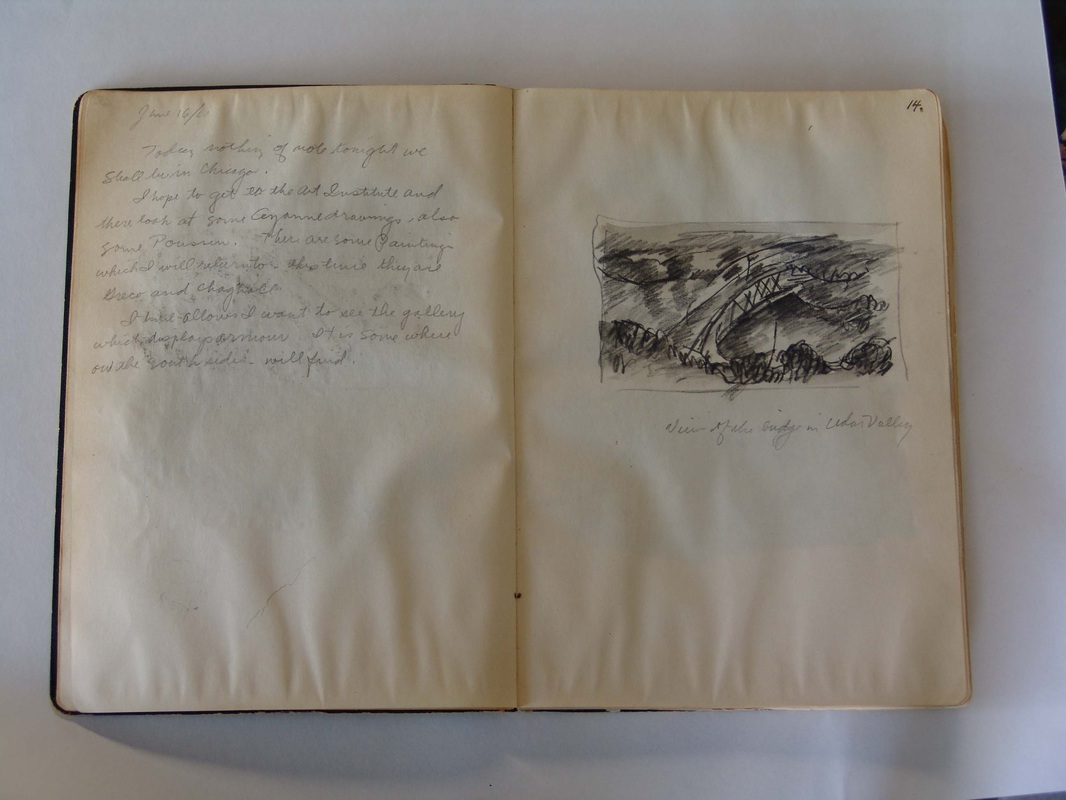 June 16/
Today nothing of note tonight we
shall be in Chicago.
I hope to get to the Art Institute and
there look at some Cezanne drawings, also
some Poussin. There are some Paintings
which I will return to this time they are
Greco and Chagall
I want to see the gallery
which displays armour It is some where
on the south side will find.
14.
View of the bridge in Valley